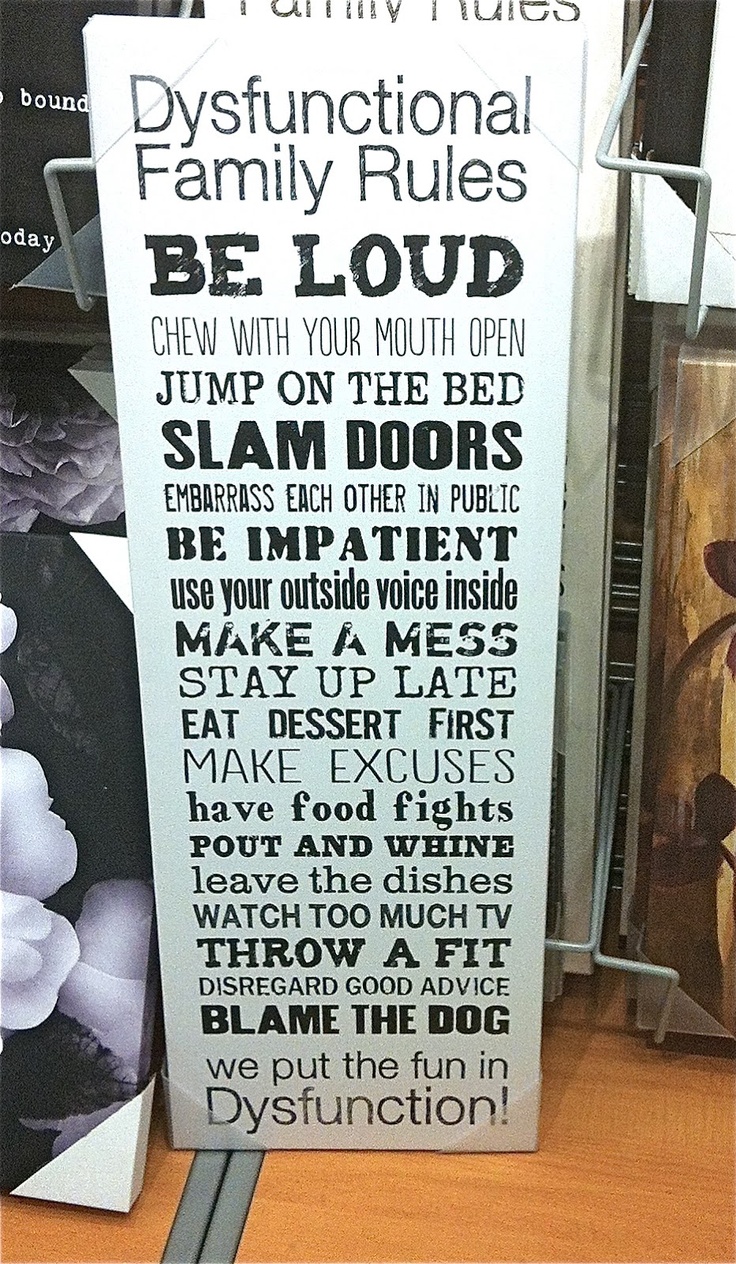 Family Rules
bound
oday
Dysfunctional
Family Rules
BE LOUD
CHEW WITH YOUR MOUTH OPEN
JUMP ON THE BED
SLAM DOORS
EMBARRASS EACH OTHER IN PUBLIC
BE IMPATIENT
use your outside voice inside
MAKE A MESS
STAY UP LATE
EAT DESSERT FIRST
MAKE EXCUSES
have food fights
POUT AND WHINE
leave the dishes
WATCH TOO MUCH TV
THROW A FIT
DISREGARD GOOD ADVICE
BLAME THE DOG
we put the fun in
Dysfunction!